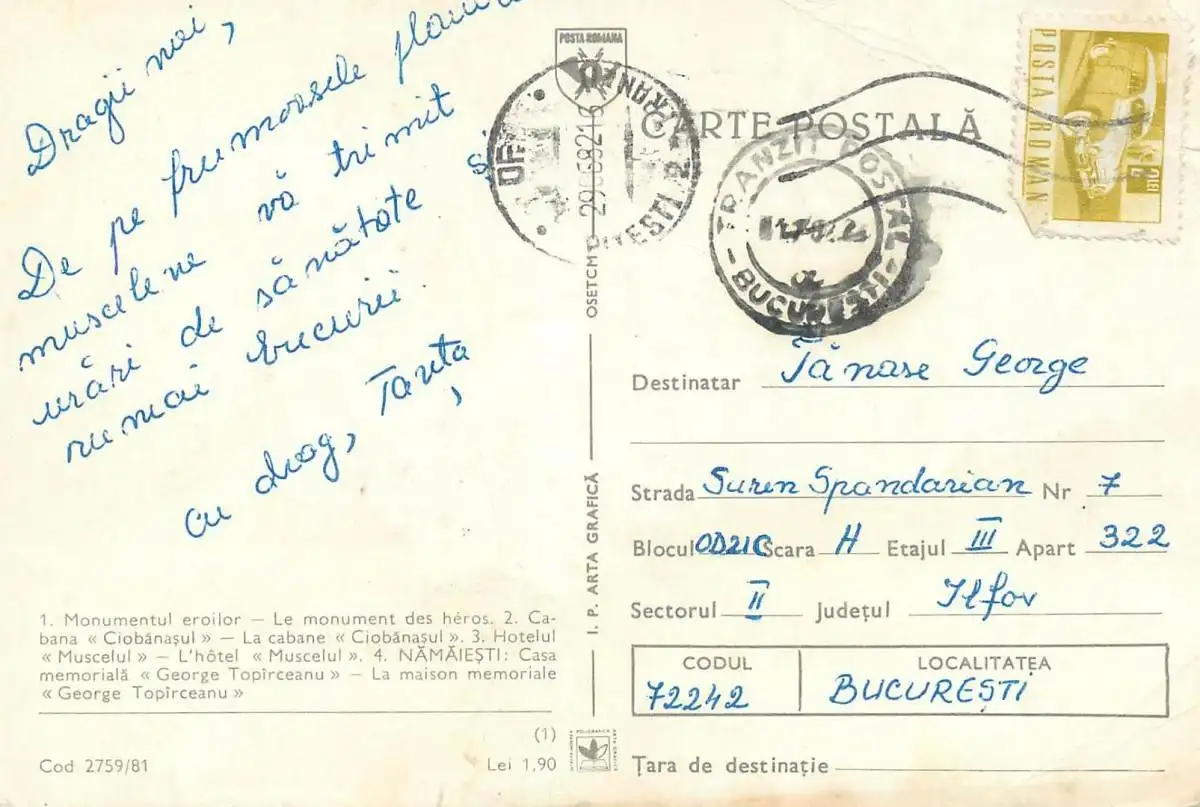 Dragii noi,
De pe frumoasele
muscelene vă trimit
urări de sănătate și
numai bucurii.
cu drag, Tanța
1. Monumentul eroilor — Le monument des héros. 2. Ca-
bana « Ciobănașul » — La cabane « Ciobănașul ». 3. Hotelul
« Muscelul » — L'hôtel « Muscelul ». 4. NĂMĂIEȘTI: Casa
memorială « George Topîrceanu » — La maison memoriale
« George Topîrceanu »
(1)
Cod 2759/81
Lei 1,90
OSETCM
I. P. ARTA GRAFICĂ
POSTA ROMANA
PITEȘTI 2 TRANZIT
CARTE POSTALĂ
TRANZIT POSTAL
- BUCUREȘTI -
POSTA ROMANA
LEI
Destinatar Tănase George
Strada Suren Spandarian Nr 7
Blocul OD21C Scara H Etajul III Apart 322
Sectorul II Județul Ilfov
CODUL LOCALITATEA
72242 BUCUREȘTI
Țara de destinație